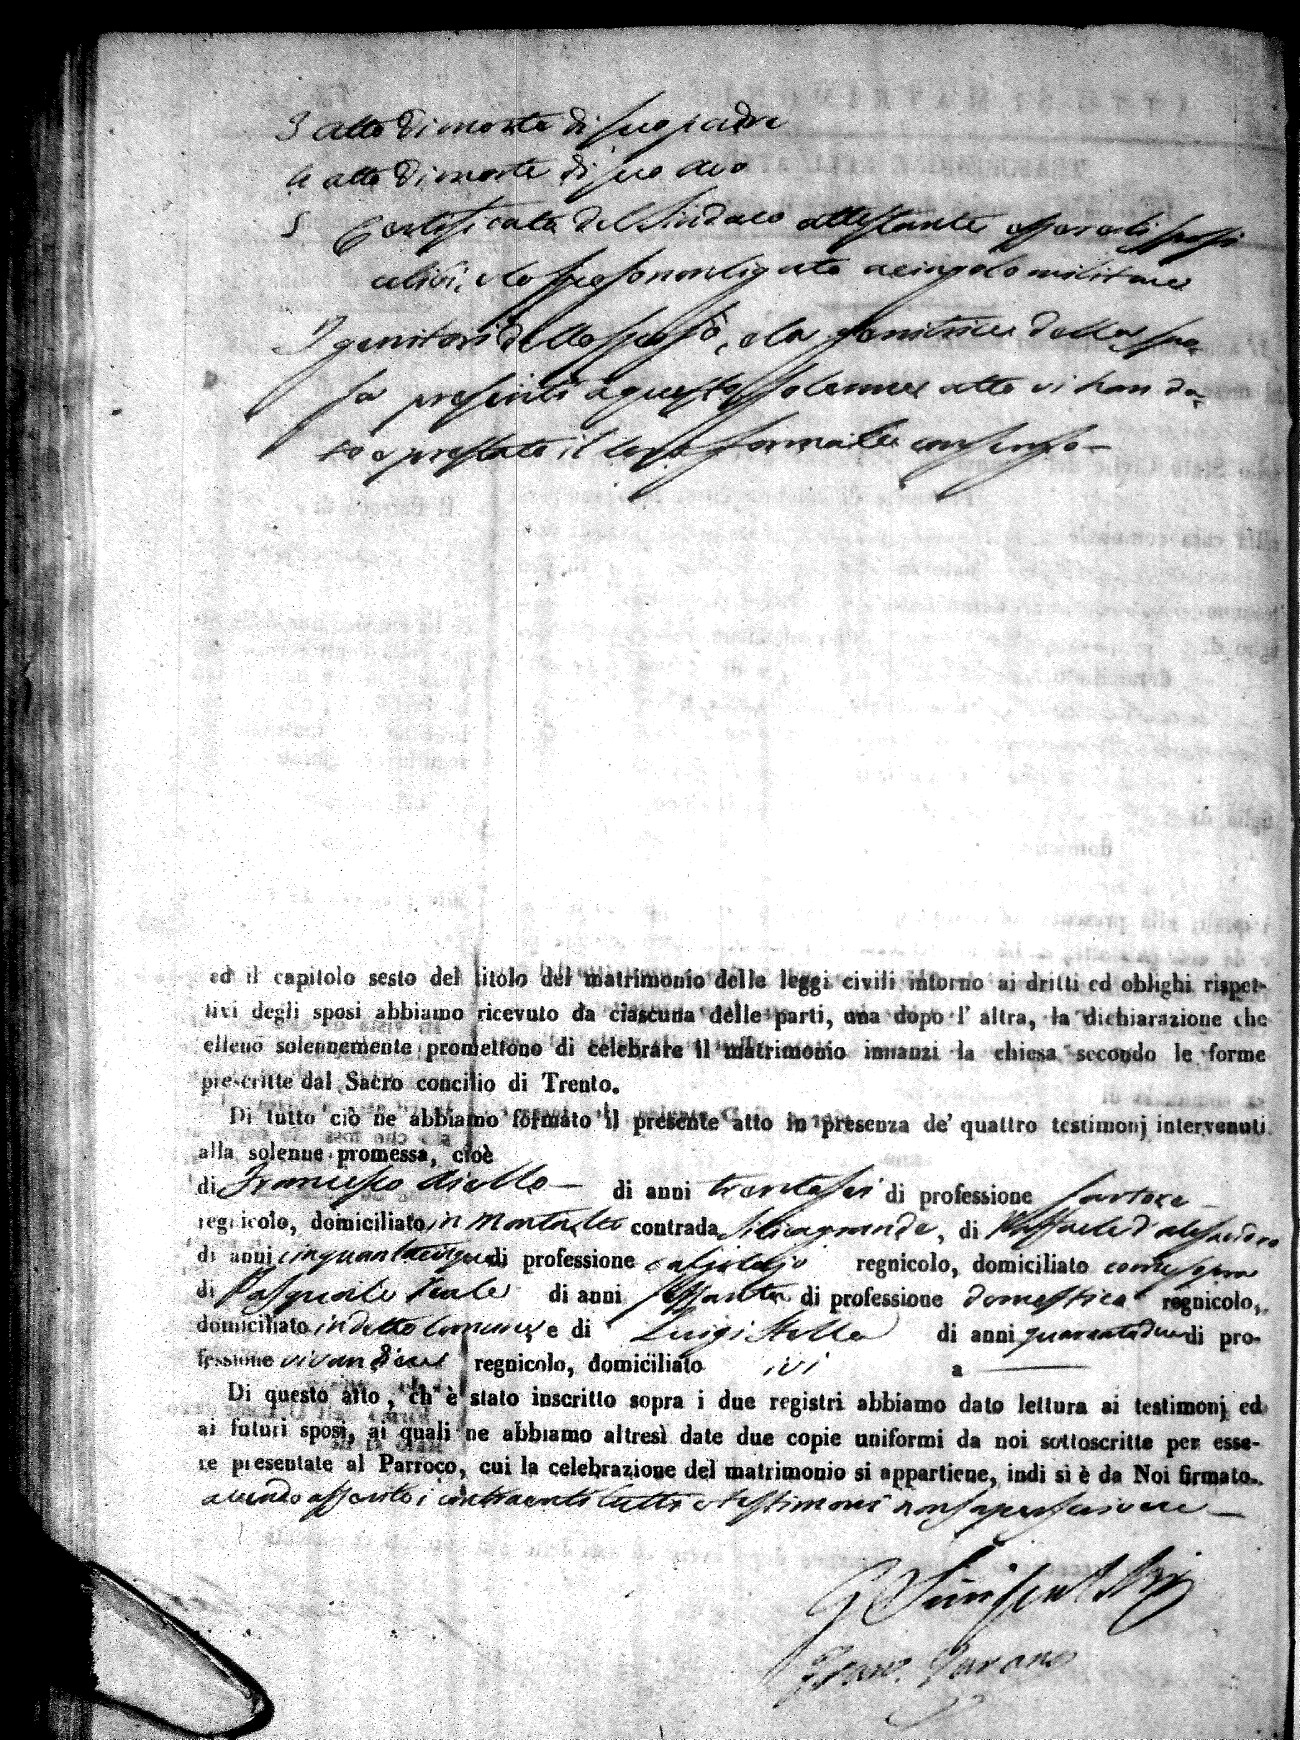 3 atto di morte di suo padre
4 atto di morte di suo avo
5 Certificato del Sindaco attestante essere li sposi
celibi, e lo sposo non ligato a cingolo militare
I genitori dello sposo, e la genitrice della spo-
sa presenti a questo solenne atto vi han da-
to e prestato il loro formale consenso —
ed il capitolo sesto del titolo del matrimonio delle leggi civili intorno ai dritti ed oblighi rispet-
tivi degli sposi abbiamo ricevuto da ciascuna delle parti, una dopo l' altra, la dichiarazione che
elleno solennemente promettono di celebrare il matrimonio innanzi la chiesa secondo le forme
prescritte dal Sacro concilio di Trento.
Di tutto ciò ne abbiamo formato il presente atto in presenza de' quattro testimonj intervenuti
alla solenne promessa, cioè
di Francesco Aiello — di anni trentasei di professione sartore —
regnicolo, domiciliato in Montalto contrada , di Raffaele d'Alessandro
di anni cinquantacinque di professione calzolajo regnicolo, domiciliato come sopra
di Pasquale Reale di anni sessanta di professione domestica regnicolo,
domiciliato in detto Comune e di Luigi Stella di anni quarantadue di pro-
fessione vivandiere regnicolo, domiciliato ivi a —
Di questo atto, ch' è stato inscritto sopra i due registri abbiamo dato lettura ai testimonj ed
ai futuri sposi, ai quali ne abbiamo altresì date due copie uniformi da noi sottoscritte per esse-
re presentate al Parroco, cui la celebrazione del matrimonio si appartiene, indi si è da Noi firmato.
avendo asserito i contraenti tutti e testimoni non saper scrivere —